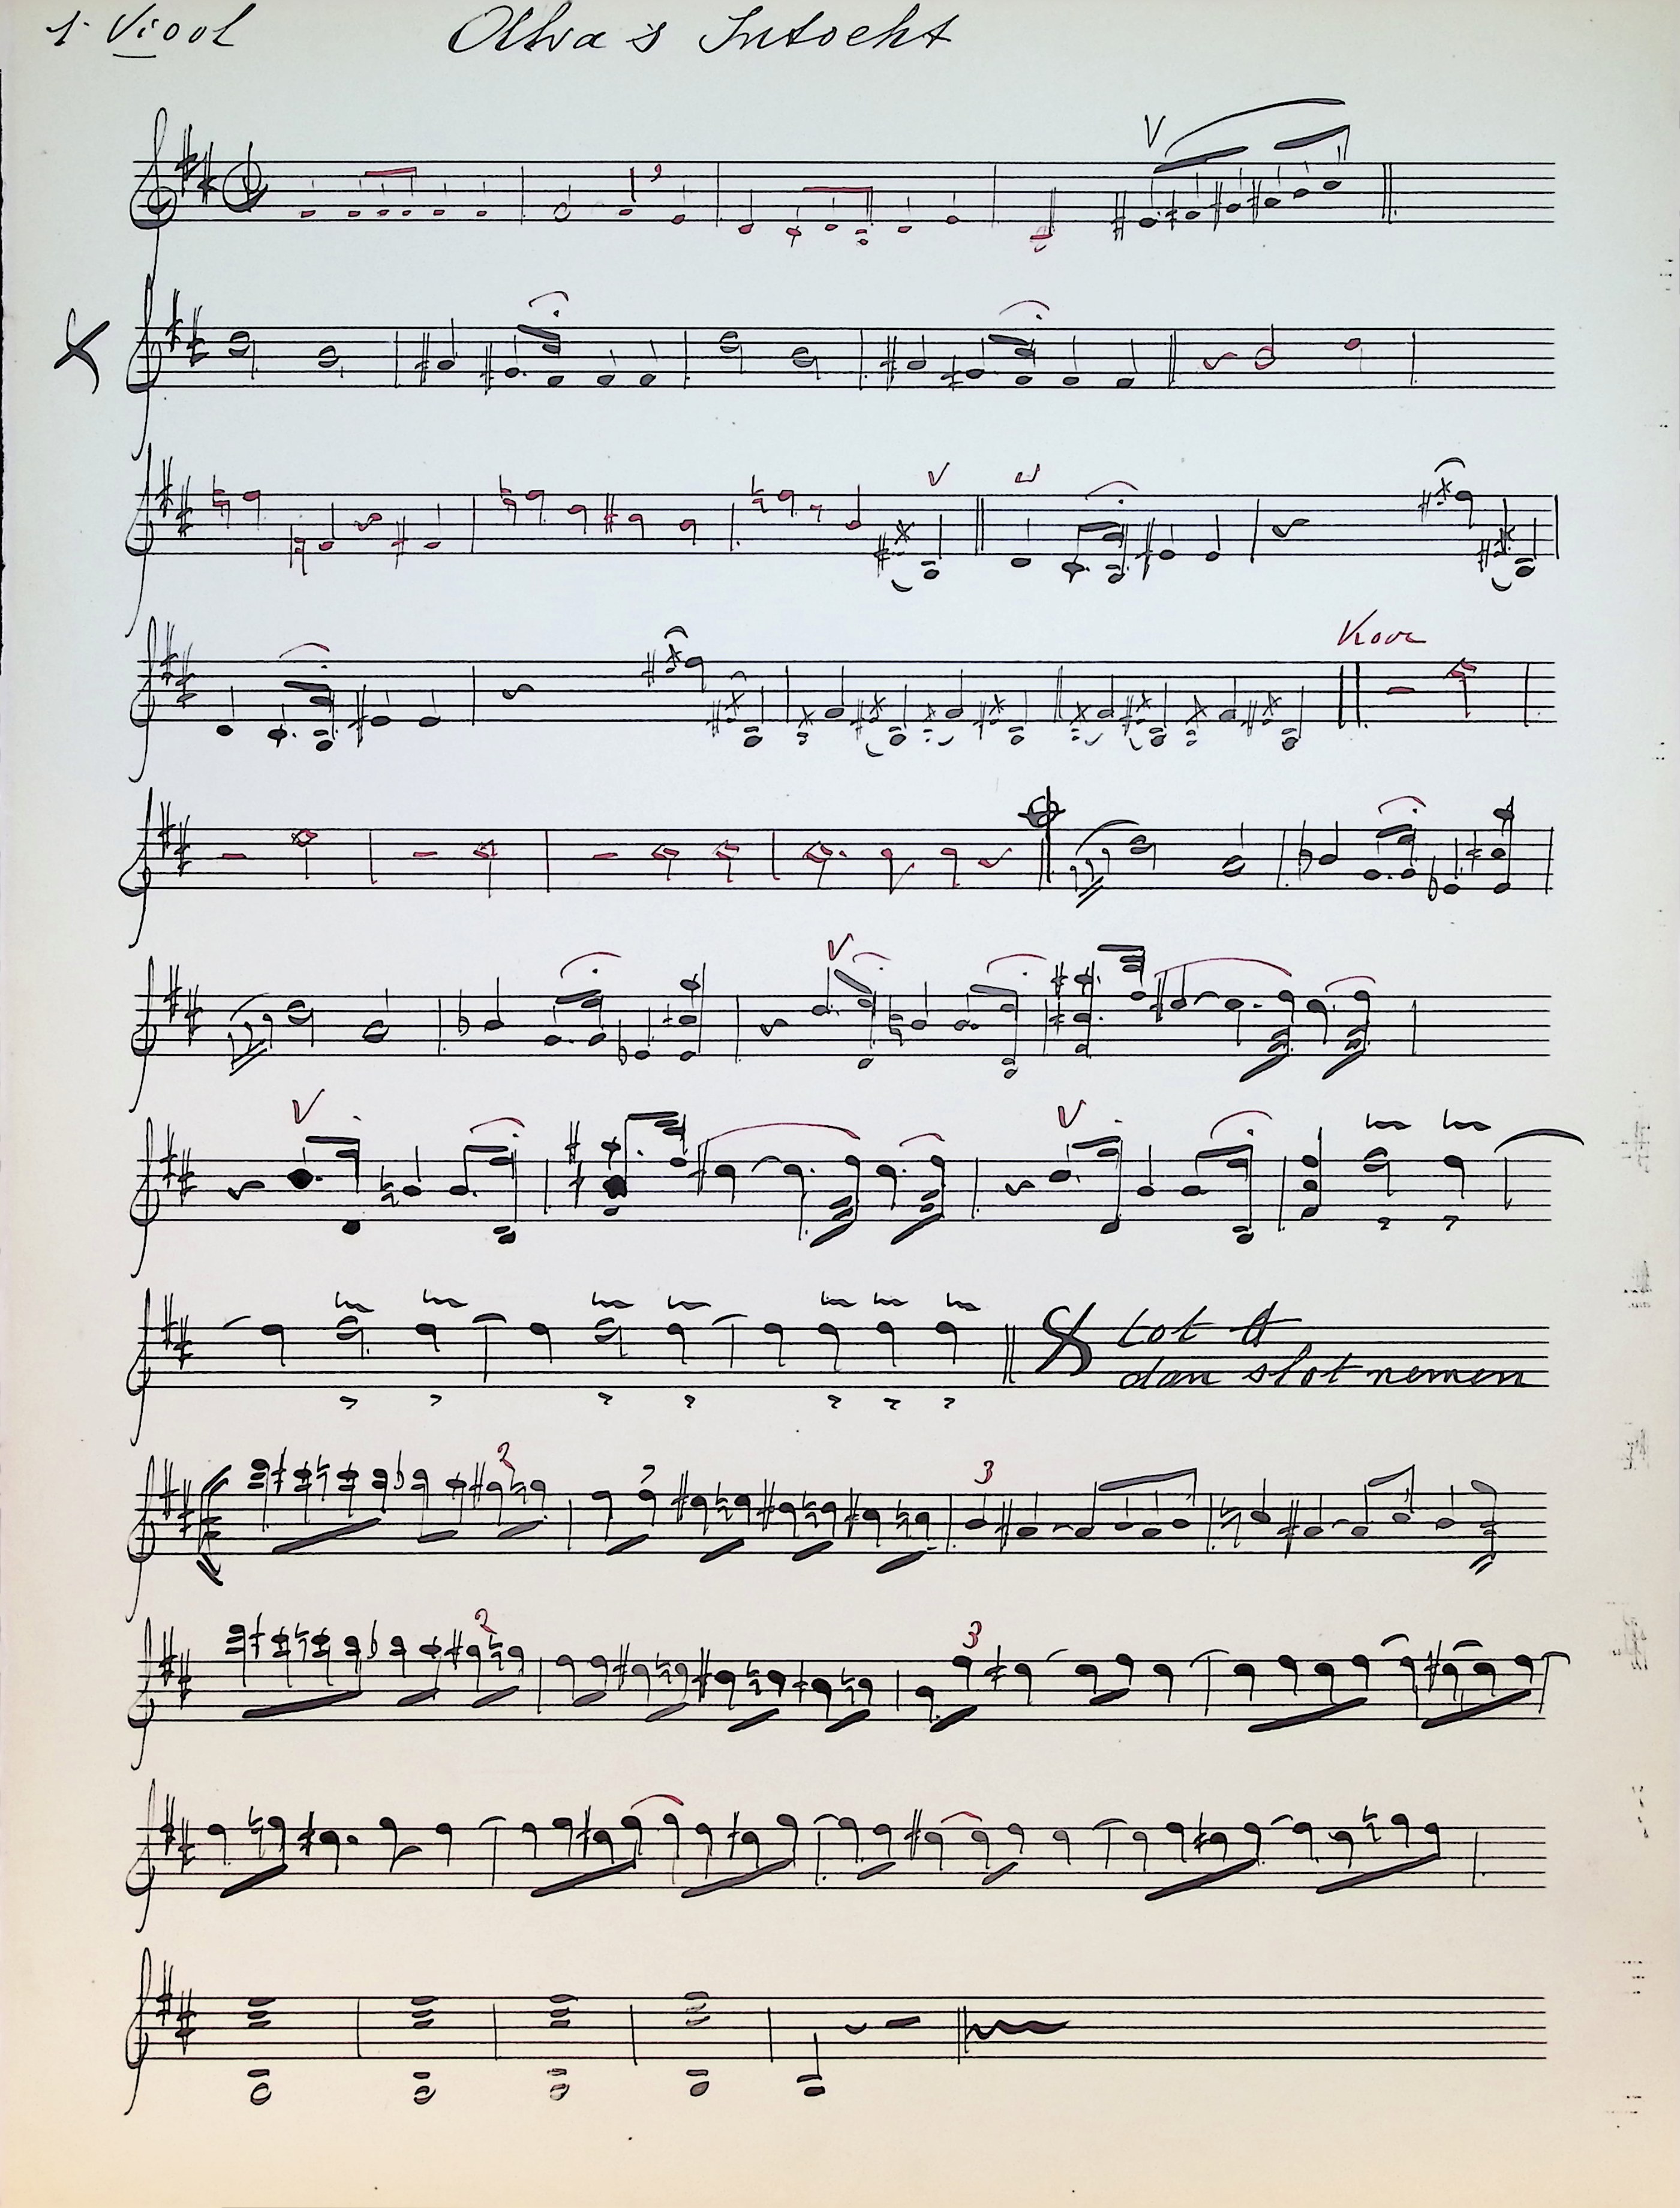 1e Viool
Alva's Intocht
Koor
2
3
2
3
tot
dan slot nemen